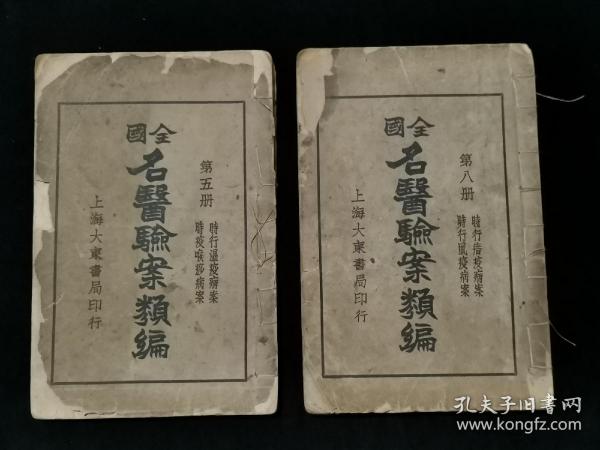 第五册
時行溫疫病案
時疫喉痧病案
全國
名醫驗案類編
上海大東書局印行
第八册
時行痦疫病案
時行風疫病案
全國
名醫驗案類編
上海大東書局印行
孔夫子旧書网
www.kongfz.com